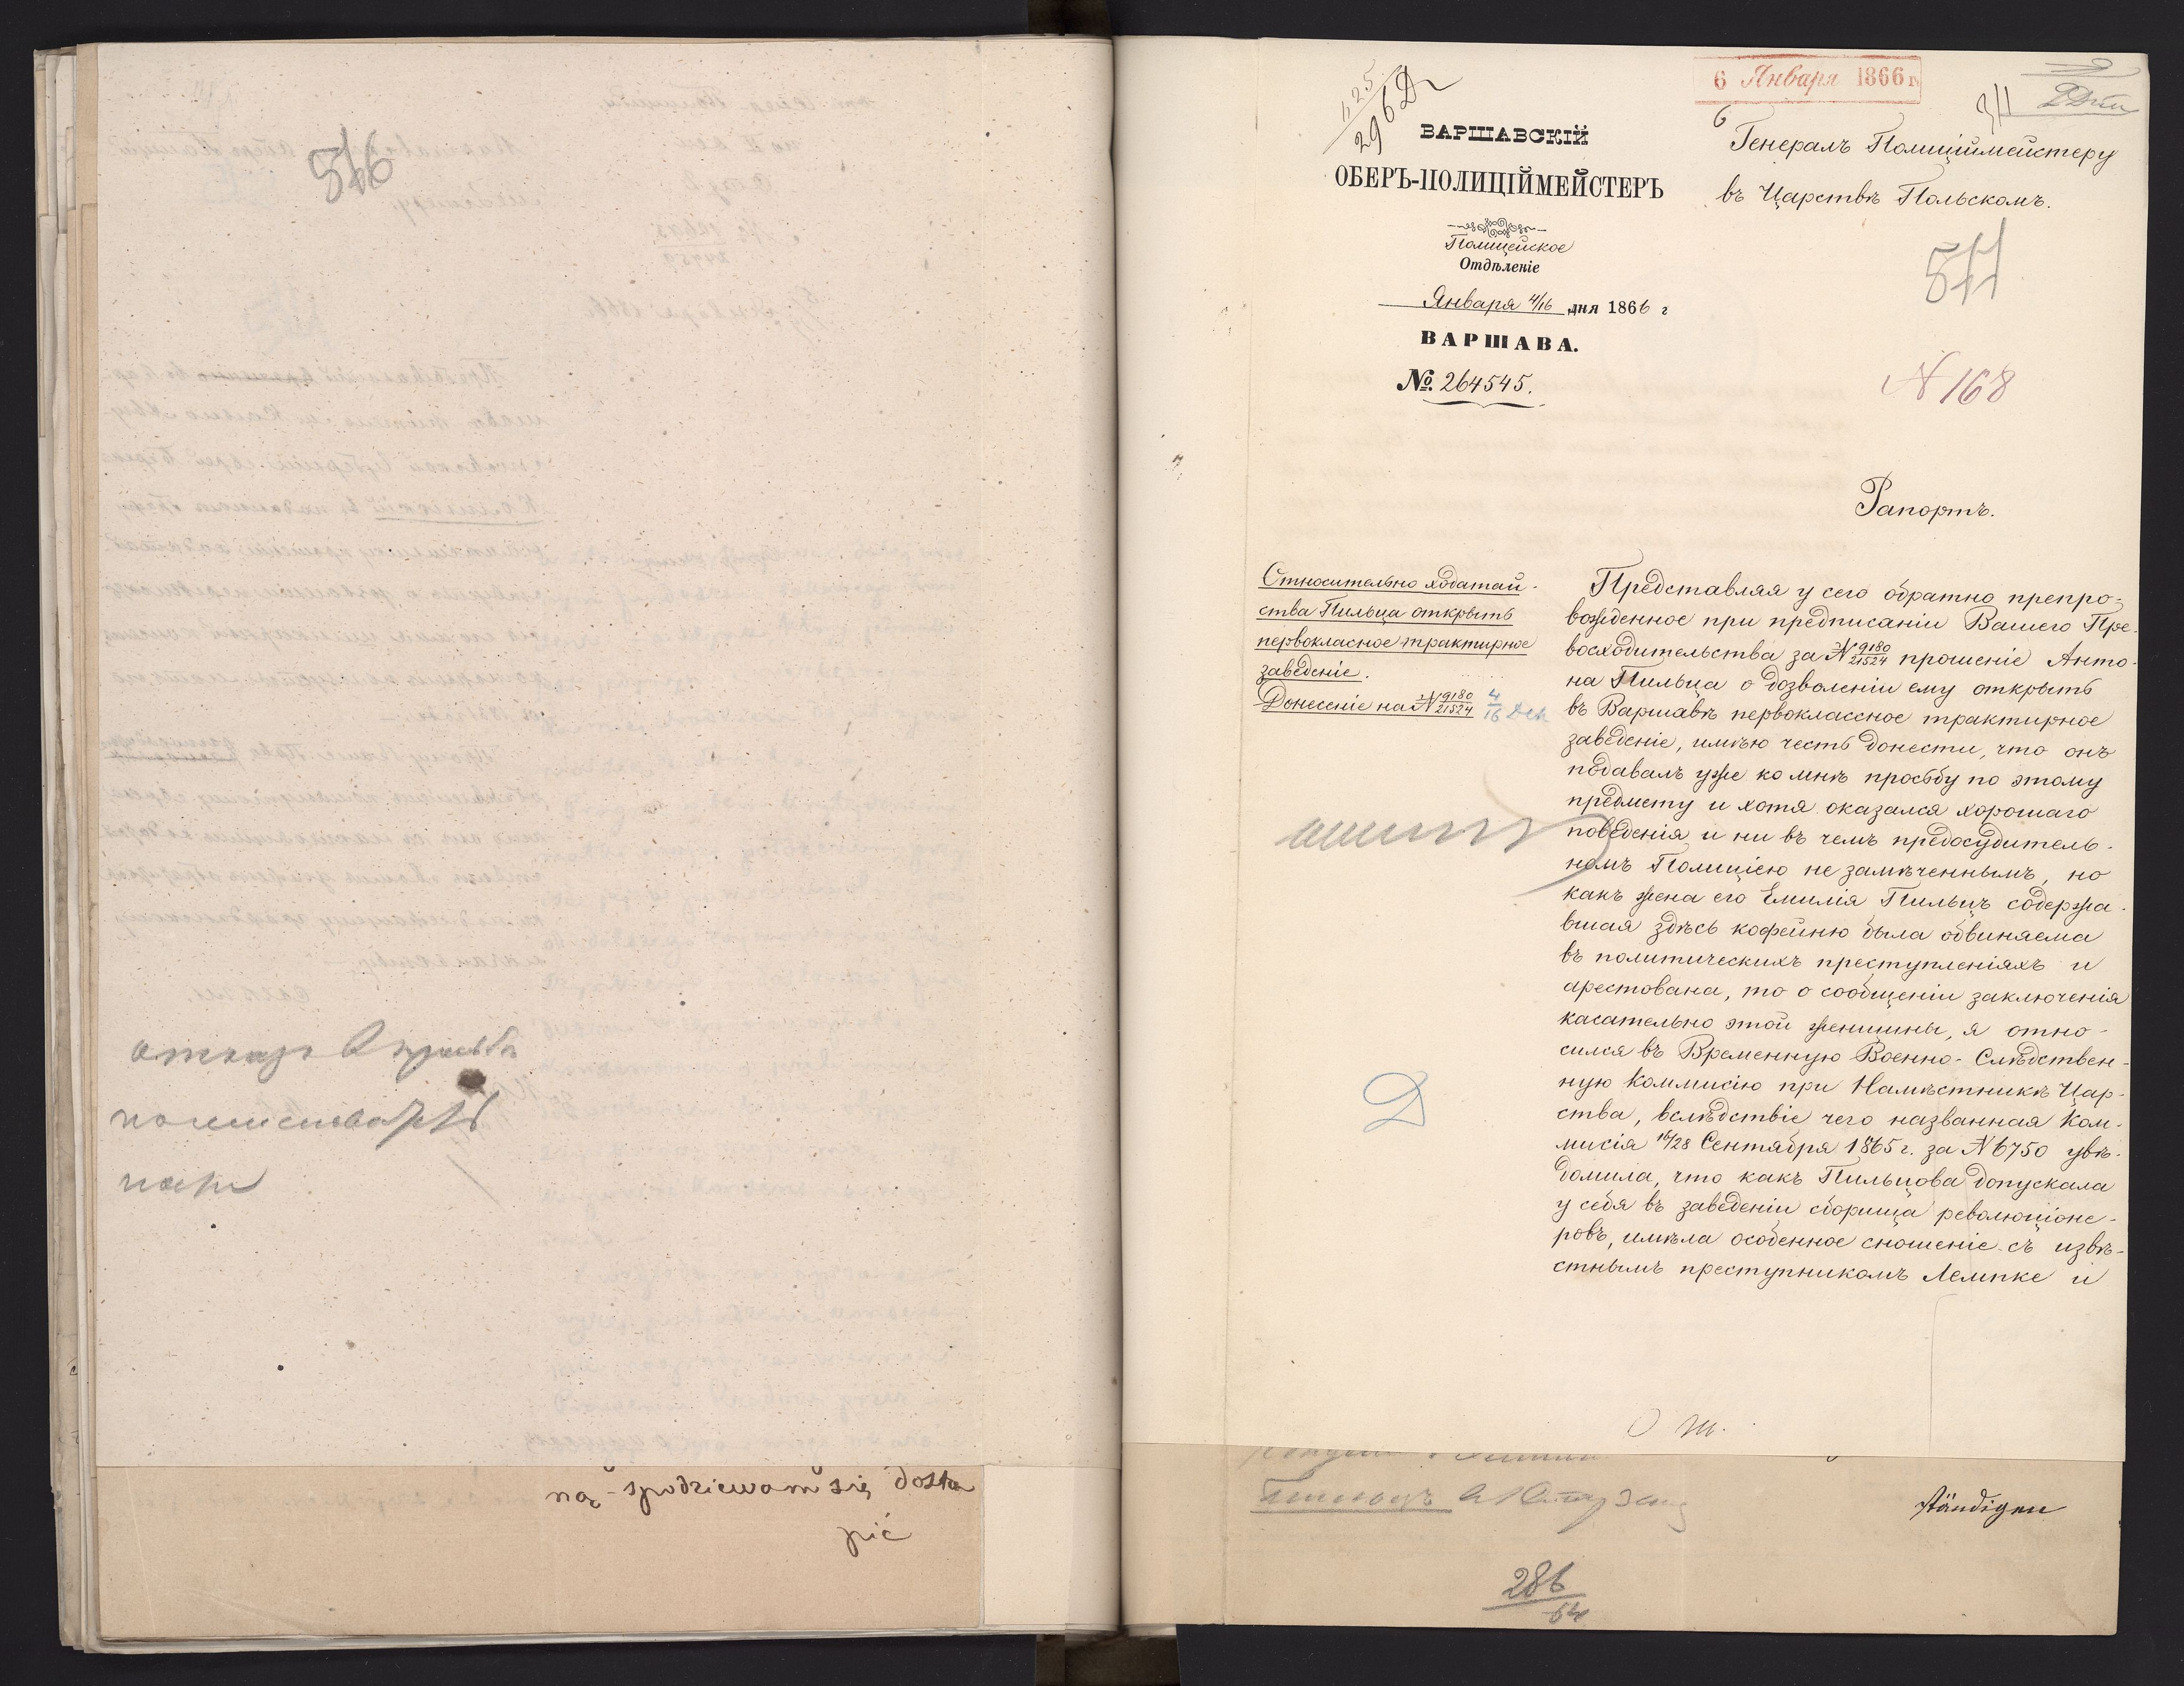 546
отказъ
ną - spodziewam się dosta
pić
6 Января 1866 г.
ВАРШАВСКІЙ
ОБЕРЪ-ПОЛИЦІЙМЕЙСТЕРЪ
Полицейское
Отдѣленіе
Января 4/16 дня 1866 г
ВАРШАВА.
№ 264545.
Генералъ Полиціймейстеру
въ Царствѣ Польскомъ.
N 168
Рапортъ.
Относительно ходатай-
ства Пильца открыть
первокласное трактирное
заведеніе.
Донесеніе на N 9180/21524 4/16 Дек
Представляя у сего обратно препро-
вожденное при предписаніи Вашего Пре-
восходительства за N 9180/21524 прошеніе Анто-
на Пильца о дозволеніи ему открыть
въ Варшавѣ первоклассное трактирное
заведеніе, имѣю честь донести, что онъ
подавалъ уже ко мнѣ просьбу по этому
предмету и хотя оказался хорошаго
поведенія и ни въ чемъ предосудитель-
номъ Полиціею не замѣченнымъ, но
какъ жена его Емилія Пильцъ содержа-
вшая здѣсь кофейню была обвиняема
въ политическихъ преступленіяхъ и
арестована, то о сообщеніи заключенія
касательно этой женщины, я отно-
сился въ Временную Военно-Слѣдствен-
ную Коммисію при Намѣстникѣ Цар-
ства, вслѣдствіе чего названная Ком-
мисія 16/28 Сентября 1865 г. за N 6750 увѣ-
домила, что какъ Пильцова допускала
у себя въ заведеніи сборища революціоне-
ровъ, имѣла особенное сношеніе съ извѣ-
стнымъ преступникомъ Лемпке и
Д
ständigen
286
54